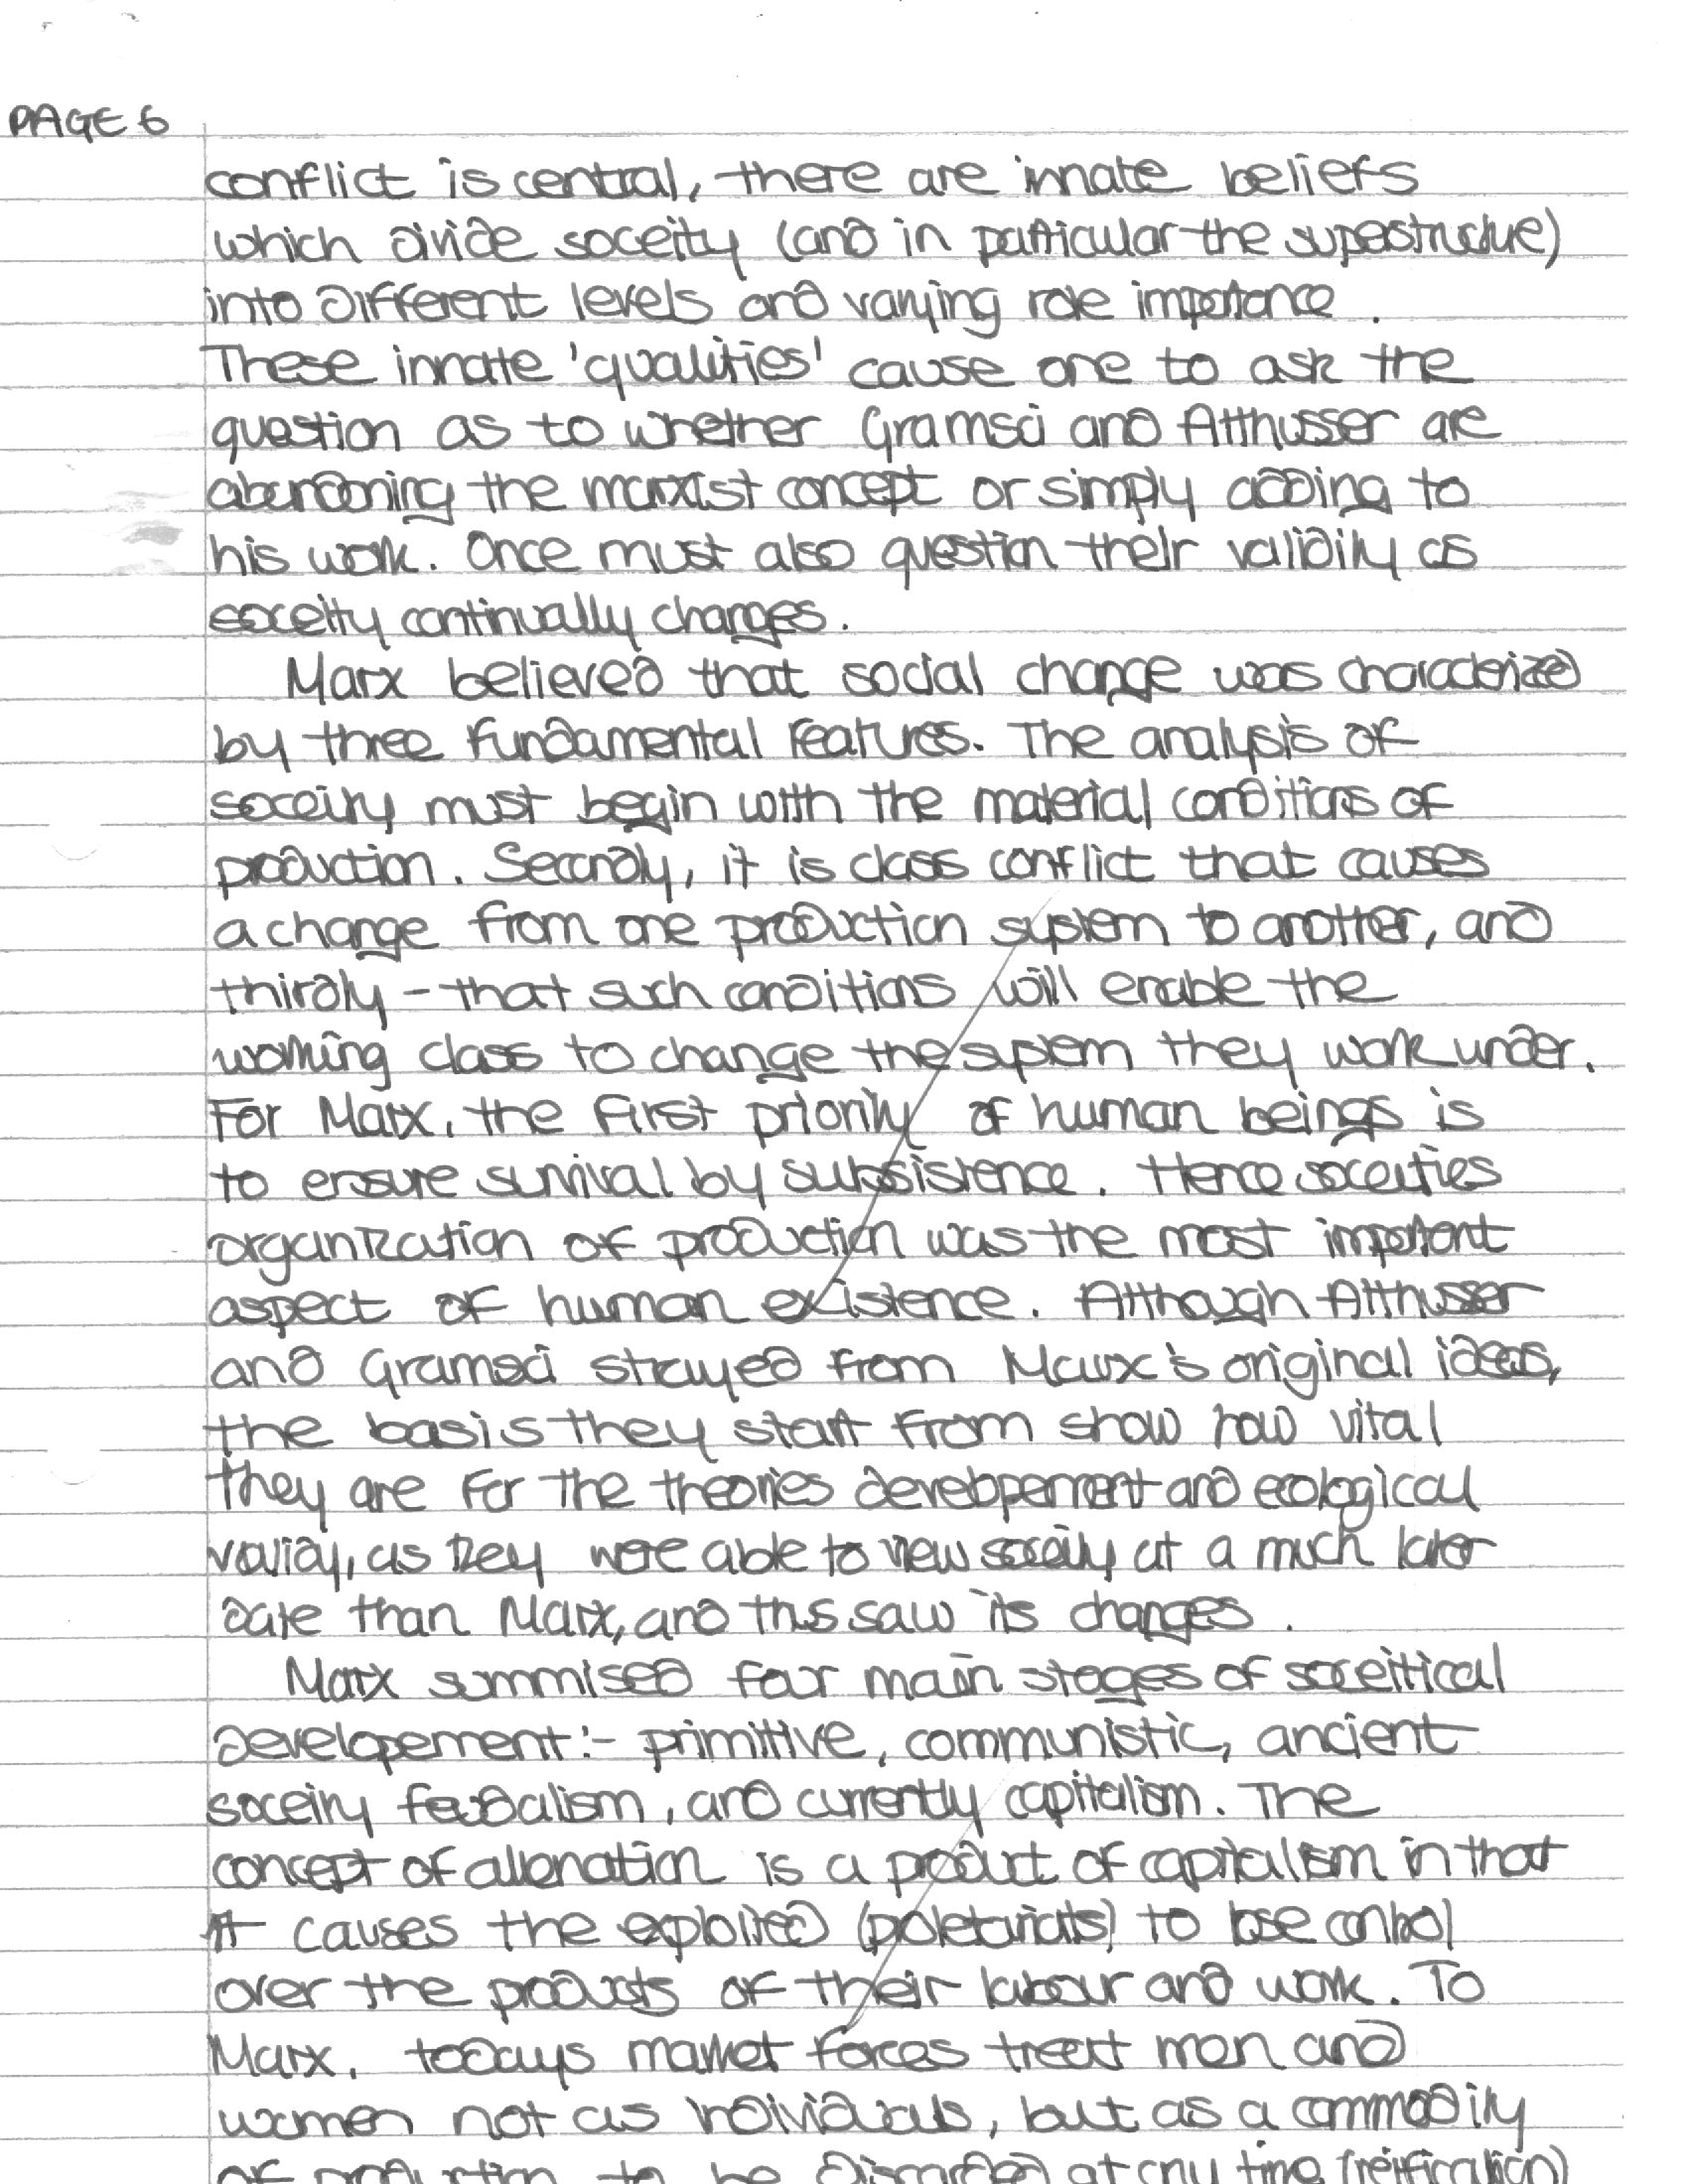 PAGE 6
conflict is central, there are innate beliefs
which divide soceity (and in particular the superstructure)
into different levels and varying role importance.
These innate 'qualities' cause one to ask the
question as to whether Gramsci and Althusser are
abandoning the marxist concept or simply adding to
his work. Once must also question their validity as
soceity continually changes.
Marx believed that social change was characterized
by three fundamental features. The analysis of
soceity must begin with the material conditions of
production. Secondly, it is class conflict that causes
a change from one production system to another, and
thirdly - that such conditions will enable the
working class to change the system they work under.
For Marx, the first priority of human beings is
to ensure survival by subsistence. Hence soceities
organization of production was the most important
aspect of human existence. Although Althusser
and Gramsci strayed from Marx's original ideas,
the basis they start from show how vital
they are for the theories developement and ecological
validy, as they were able to view soceity at a much later
date than Marx, and thus saw its changes.
Marx summised four main stages of soceitical
developement:- primitive, communistic, ancient
soceity feudalism, and currently capitalism. The
concept of alienation is a product of capitalism in that
it causes the exploited (proletariats) to lose control
over the products of their labour and work. To
Marx, todays market forces treat men and
women not as individuals, but as a commodity
of production to be discarded at any time (reification)